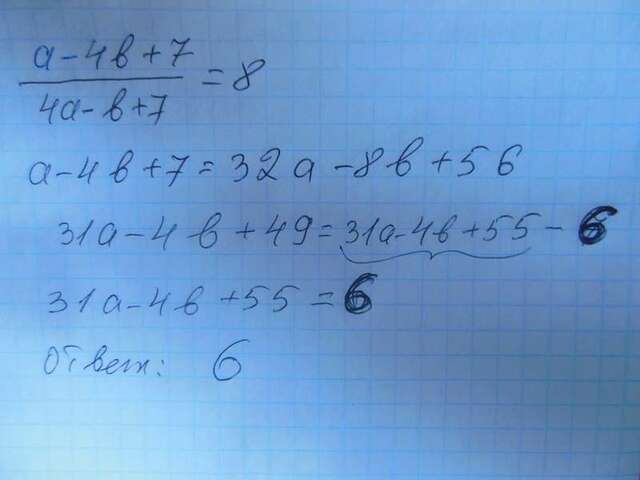 a-4b+7
4a-b+7 = 8
a-4b+7=32a-8b+56
31a-4b+49=31a-4b+55-6
31a-4b+55=6
Ответ: 6